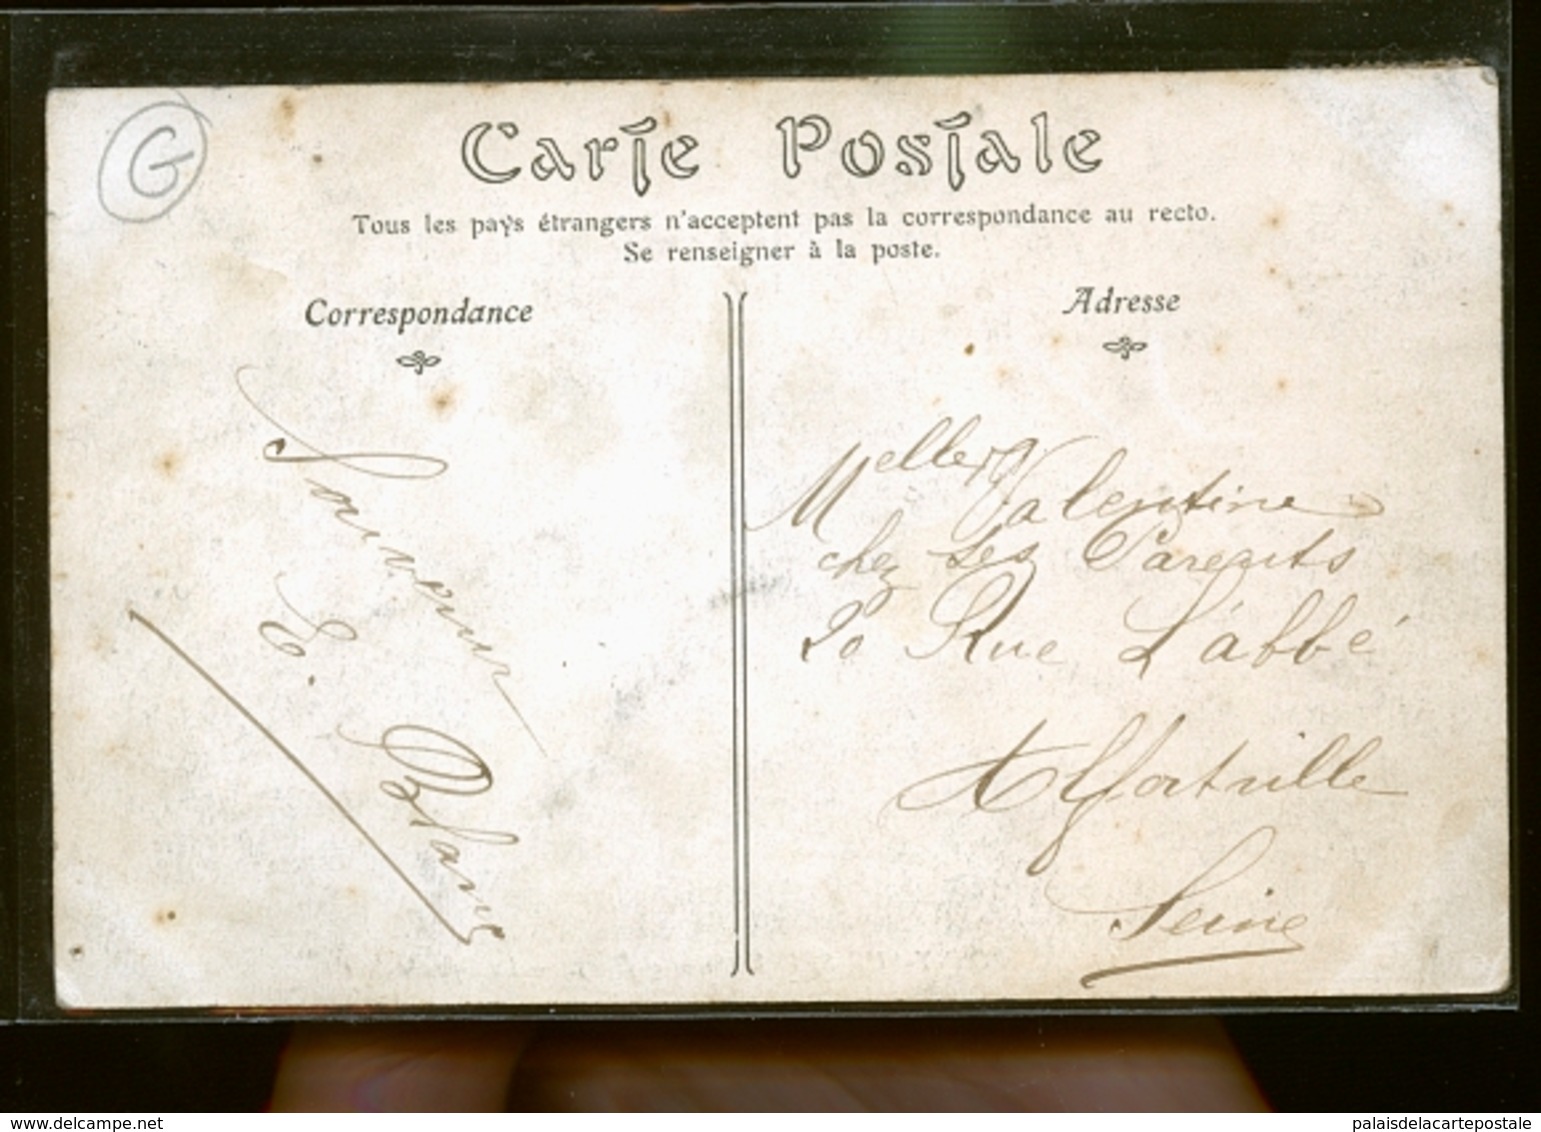 G
Carte Postale
Tous les pays étrangers n'acceptent pas la correspondance au recto.
Se renseigner à la poste.
Correspondance
Adresse
Souvenir
E. Blanc
Melle Valentine
chez ses Parents
20 Rue L'abbé
Alfortville
Seine
www.delcampe.net
palaisdelacartepostale